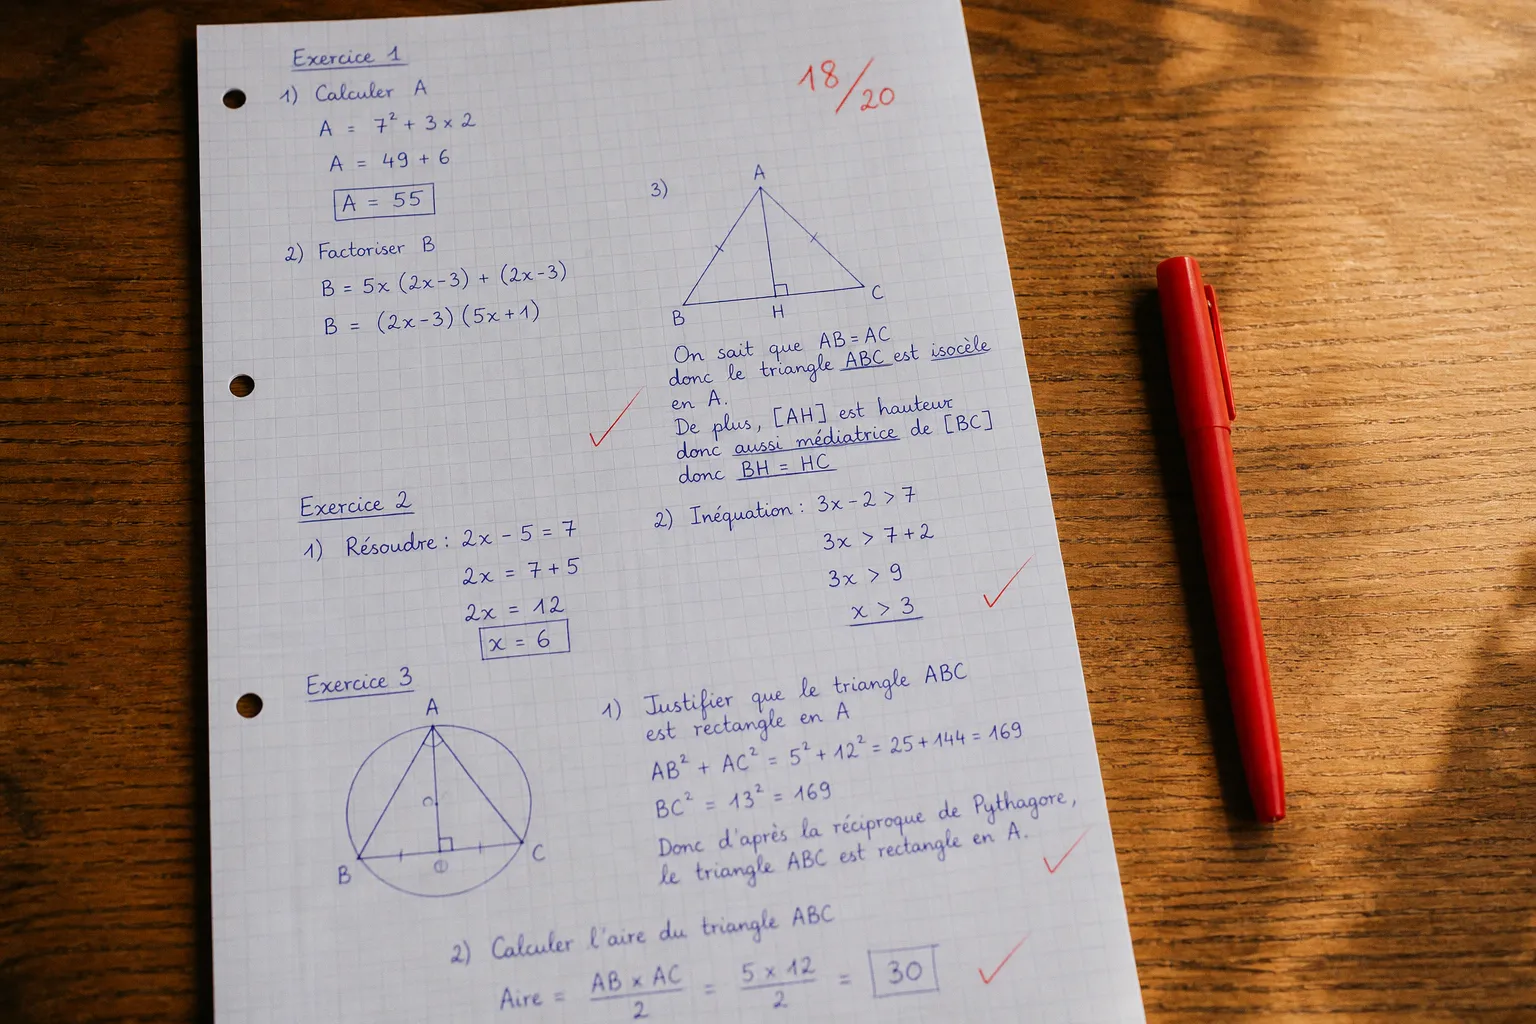 Exercice 1
18/20
1) Calculer A
A = 7² + 3 × 2
A = 49 + 6
A = 55
2) Factoriser B
B = 5x (2x-3) + (2x-3)
B = (2x-3)(5x+1)
3)
A
B
H
C
On sait que AB = AC
donc le triangle ABC est isocèle
en A.
De plus, [AH] est hauteur
donc aussi médiatrice de [BC]
donc BH = HC
Exercice 2
1) Résoudre : 2x - 5 = 7
2x = 7 + 5
2x = 12
x = 6
2) Inéquation : 3x - 2 > 7
3x > 7 + 2
3x > 9
x > 3
Exercice 3
A
B
C
1) Justifier que le triangle ABC
est rectangle en A
AB² + AC² = 5² + 12² = 25 + 144 = 169
BC² = 13² = 169
Donc d'après la réciproque de Pythagore,
le triangle ABC est rectangle en A.
2) Calculer l'aire du triangle ABC
Aire = AB × AC / 2 = 5 × 12 / 2 = 30